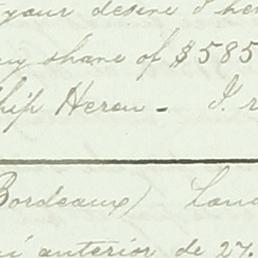 your desire I her
my share of $585
ship Heron - I r
Bordeaux) Lon
mi anterior de 27.